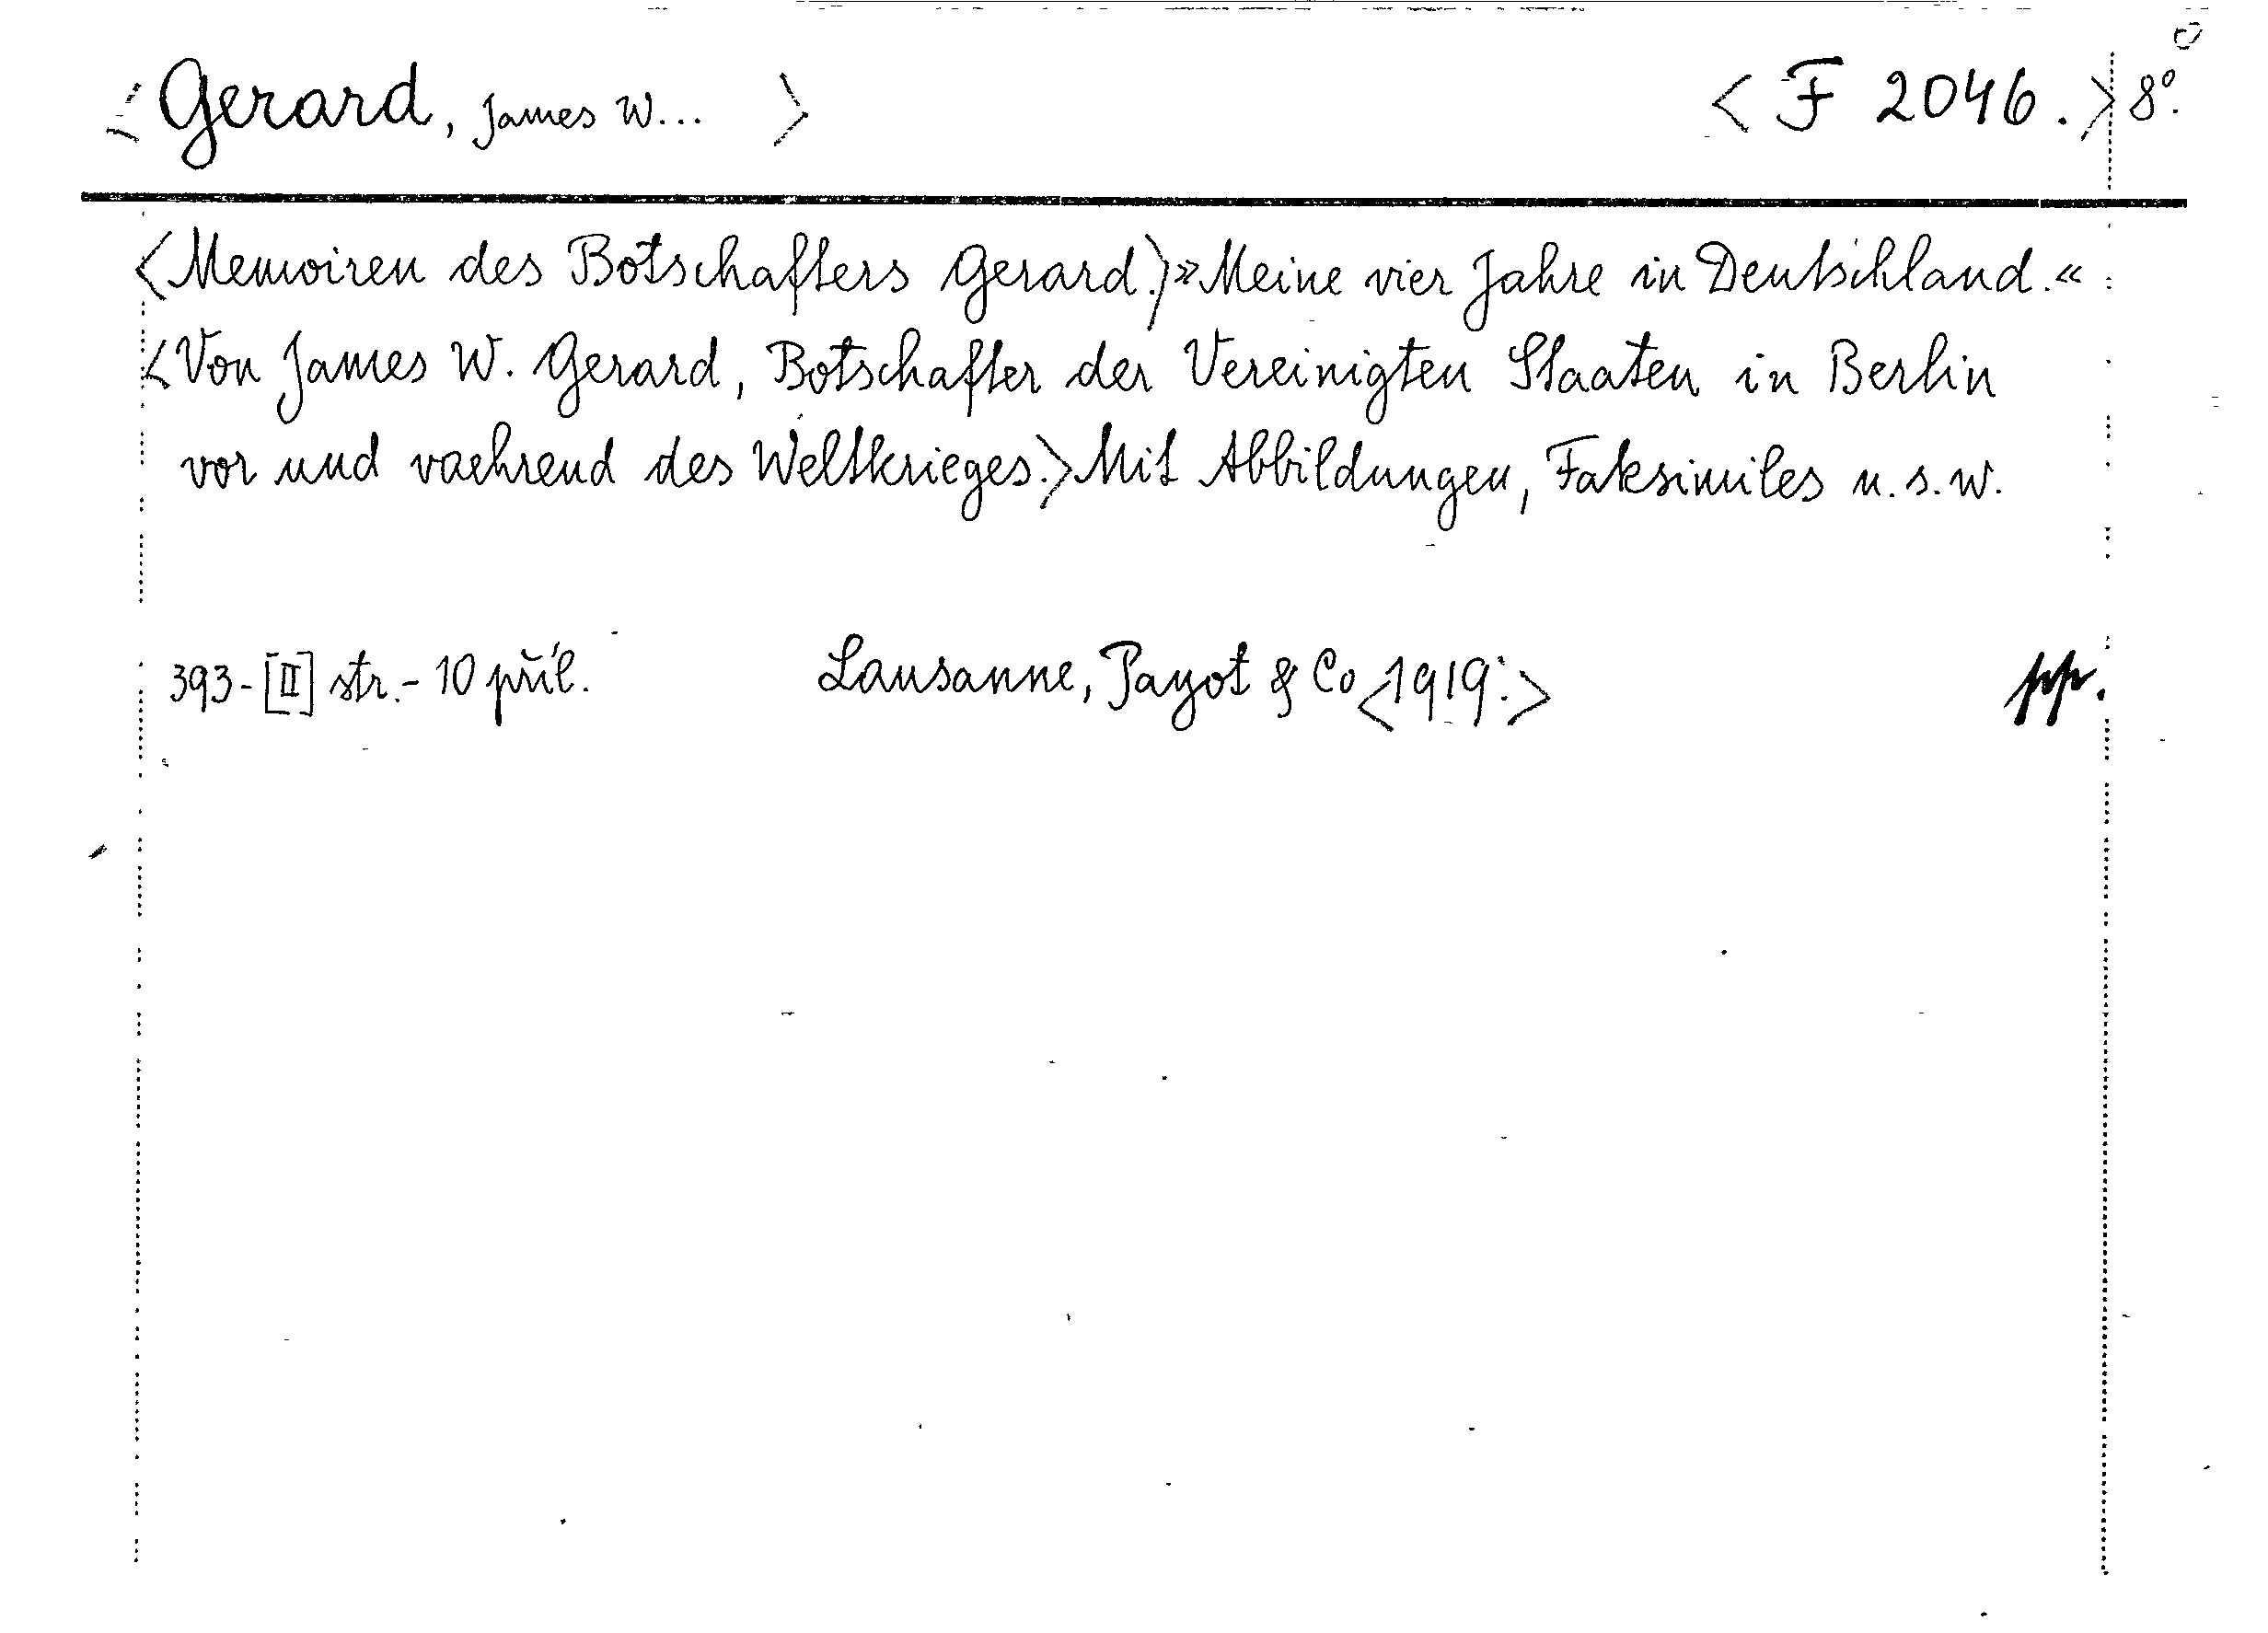 <Gerard, James W... > <F 2046.> 8°.
<Memoiren des Botschafters Gerard.> »Meine vier Jahre in Deutschland.«
<Von James W. Gerard, Botschafter der Vereinigten Staaten in Berlin
vor und vaehrend des Weltkrieges.> Mit Abbildungen, Faksimiles u. s. w.
393-[II] str.- 10 příl. Lausanne, Payot & Co <1919.> pp.